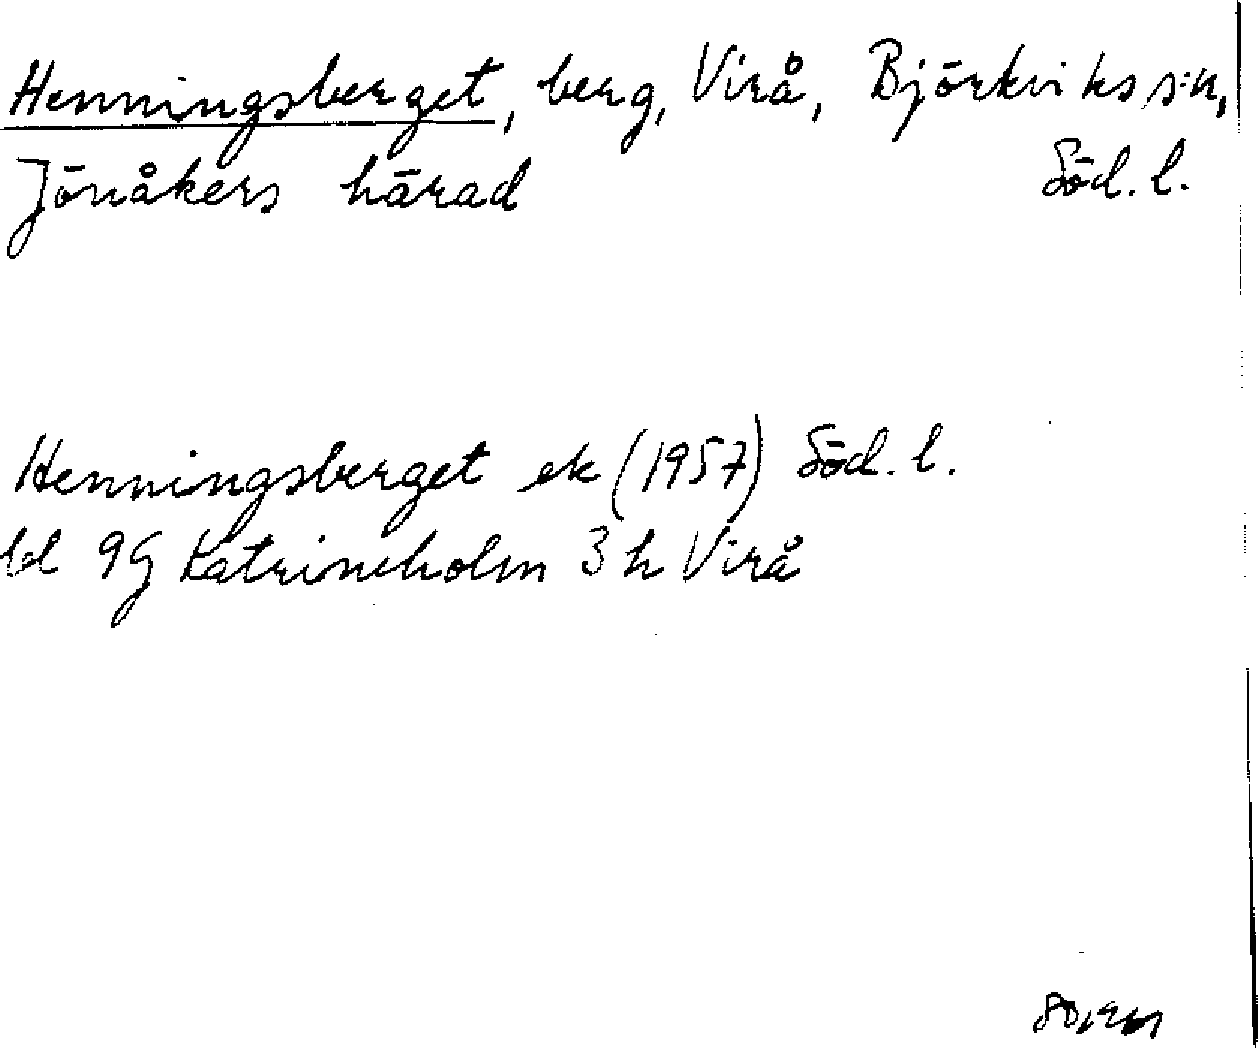 Henningsberget, berg, Virå, Björkviks s:n,
Jönåkers härad Söd. l.
Henningsberget ek (1957) Söd. l.
bl 9G Katrineholm 3 h Virå